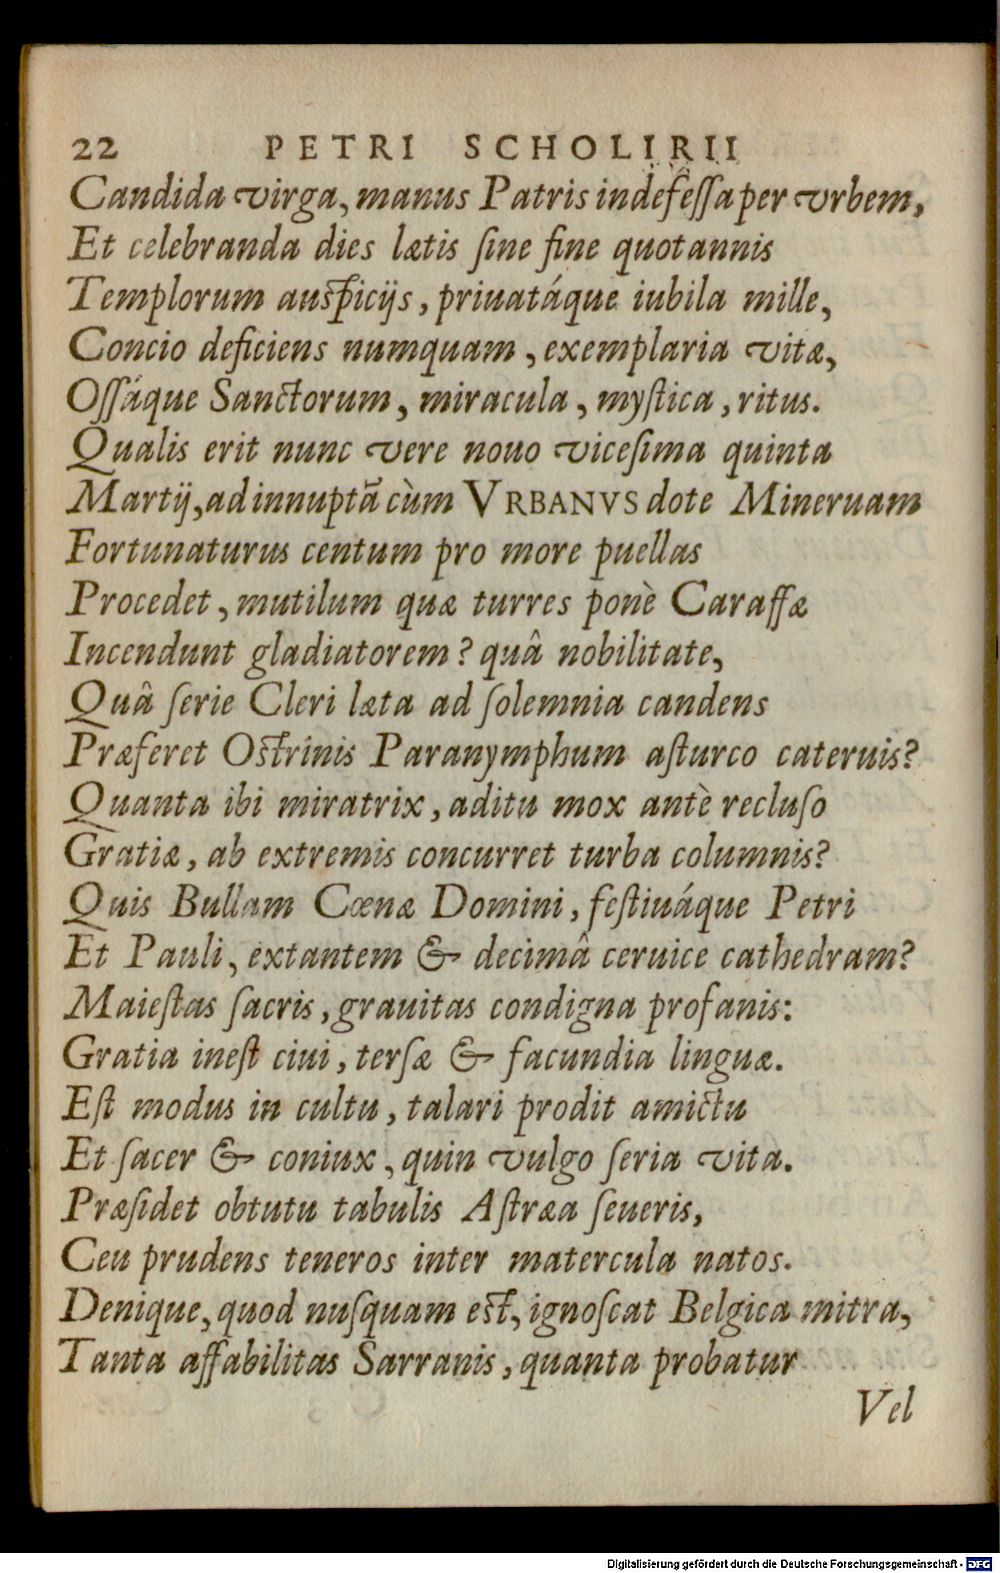 22 PETRI SCHOLIRII
Candida virga, manus Patris indefeſſa per vrbem,
Et celebranda dies lætis ſine fine quotannis
Templorum auſpicijs, priuatáque iubila mille,
Concio deficiens numquam, exemplaria vitæ,
Oſſáque Sanctorum, miracula, myſtica, ritus.
Qualis erit nunc vere nouo viceſima quinta
Martij, ad innuptã cùm VRBANVS dote Mineruam
Fortunaturus centum pro more puellas
Procedet, mutilum quæ turres ponè Caraffæ
Incendunt gladiatorem? quâ nobilitate,
Quâ ſerie Cleri læta ad ſolemnia candens
Præferet Oſtrinis Paranymphum aſturco cateruis?
Quanta ibi miratrix, aditu mox antè recluſo
Gratiæ, ab extremis concurret turba columnis?
Quis Bullam Cœnæ Domini, feſtiuáque Petri
Et Pauli, extantem & decimâ ceruice cathedram?
Maieſtas ſacris, grauitas condigna profanis:
Gratia ineſt ciui, terſæ & facundia linguæ.
Eſt modus in cultu, talari prodit amictu
Et ſacer & coniux, quin vulgo ſeria vita.
Præſidet obtutu tabulis Aſtræa ſeueris,
Ceu prudens teneros inter matercula natos.
Denique, quod nuſquam eſt, ignoſcat Belgica mitra,
Tanta affabilitas Sarranis, quanta probatur
Vel
Digitalisierung gefördert durch die Deutsche Forschungsgemeinschaft - DFG